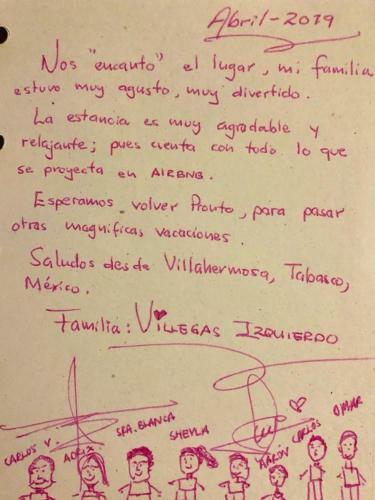 Abril-2019
Nos "encanto" el lugar, mi familia
estuvo muy agusto, muy divertido.
La estancia es muy agradable y
relajante; pues cuenta con todo lo que
se proyecta en AIRBNB.
Esperamos volver Pronto, para pasar
otras magnificas vacaciones.
Saludos desde Villahermosa, Tabasco,
México.
Familia: VILLEGAS IZQUIERDO
CARLOS V. ADRIX SRA. BLANCA SHEYLA AARON CARLOS OMAR